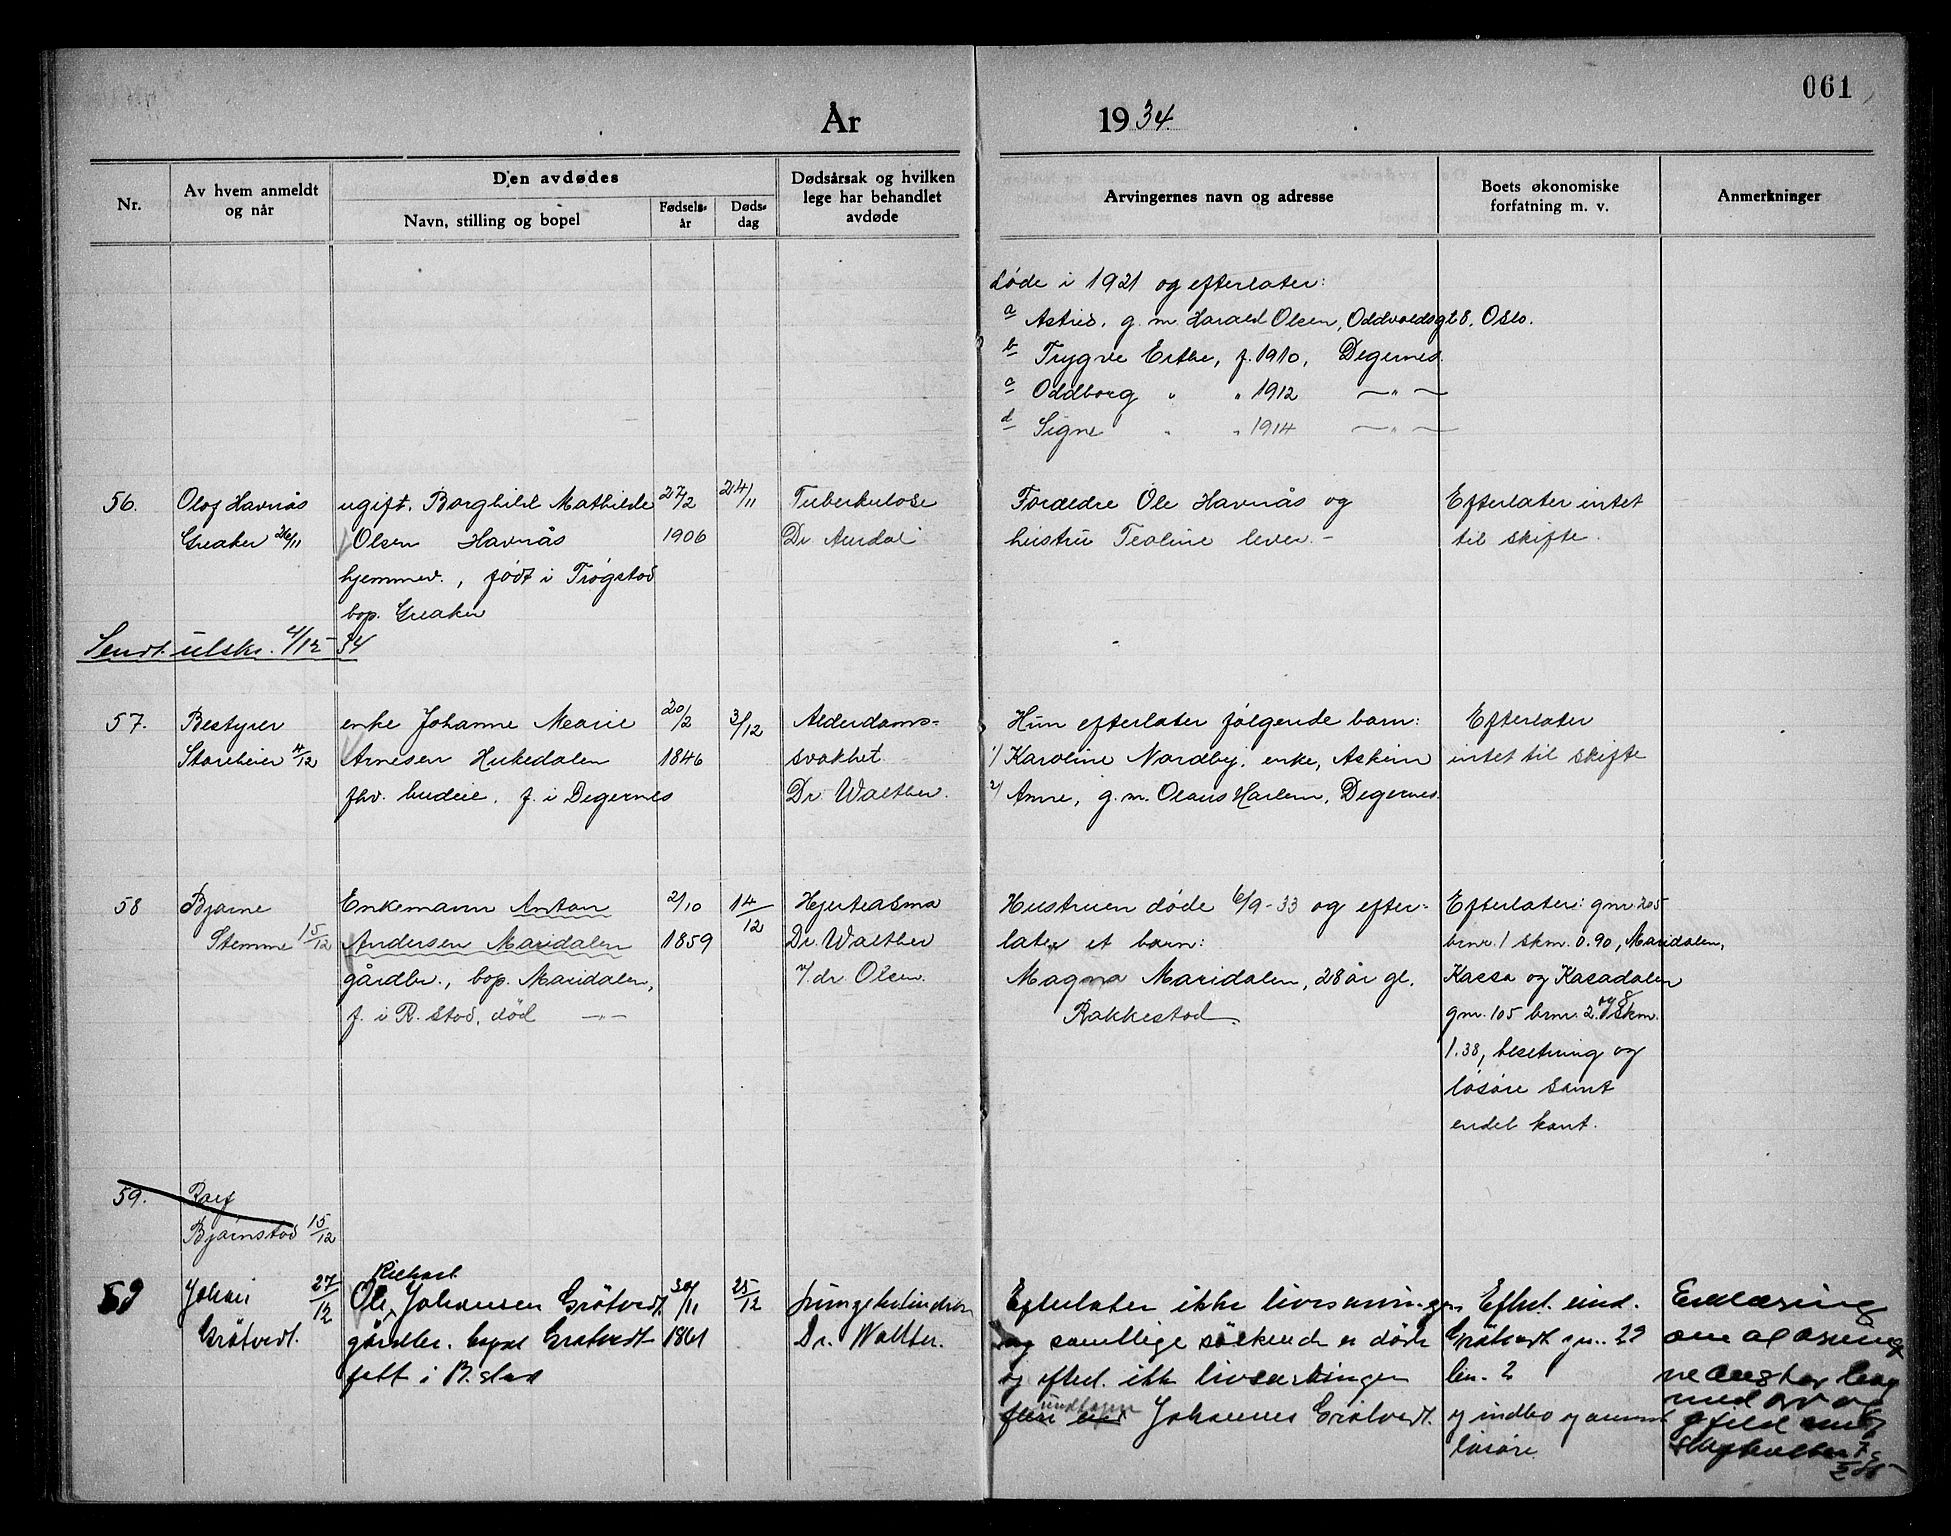 061
År 1934
Nr.
Av hvem anmeldt og når
Den avdødes
Navn, stilling og bopel
Fødsels-år
Døds-dag
Dødsårsak og hvilken lege har behandlet avdøde
Arvingernes navn og adresse
Boets økonomiske forfatning m. v.
Anmerkninger
døde i 1921 og efterlater:
a Astrid, g. m. Harald Olsen, Oddvaldsg 28, Oslo.
b Trygve Ertke, f. 1910, Degernes.
c Oddborg " " 1912 — " —
d Signe " " 1914 — " —
56.
Olof Havnås
Greaker 26/11
ugift. Borghild Mathilde
Olsen Havnås
hjemmev., født i Trøgstad
bop. Greaker
27/2
1906
24/11
Tuberkulose
Dr.
Forældre Ole Havnås og
hustru Teoline lever. -
Efterlater intet
til skifte.
Sendt utskr. 4/12 34
57.
Bestyrer
Storeheier 4/12
enke Johanne Marie
Arnesen Hukedalen
fhv. budeie, f. i Degernes
20/2
1846
3/12
Alderdoms-
svakhet
Dr. Walther.
Hun efterlater følgende barn:
1/ Karoline Nordby, enke, Askim
2/ Anne, g. m. Olaus Harlem, Degernes.
Efterlater
intet til skifte
58
Bjarne
Stemme 15/12
Enkemann Anton
Andersen Maridalen
gårdbr., bop. Maridalen,
f. i R.stad, død —"—
2/10
1859
14/12
Hjerteasma
Dr. Walther
v/ dr Olsen.
Hustruen døde 6/9-33 og efter-
later et barn:
Magna Maridalen, 28 år gl.
Rakkestad.
Efterlater: gnr. 205
brnr. 1 skm. 0.90, Maridalen,
Kassa og Kasadalen
gnr. 105 brnr. 2 og 8 skm.
1.38, besetning og
løsøre samt
endel kont.
59.
Rolf
Bjørnstad 15/12
59
Johan
Grøtvedt. 27/12
Richart
Ole Johansen Grøtvedt
gårdbr. Grøtvedt
født i R.stad
30/11
1861
25/12
Dr. Walther.
Efterlater ikke livsarvinger
og samtlige søskende er døde
og efterl. ikke livsarvinger
undtagen
Johannes Grøtvedt.
Efterl. eiend.
Grøtvedt gnr. 29
bnr. 2
og indbo og annet
løsøre.
Erklæring
om
med arv og
gjeld